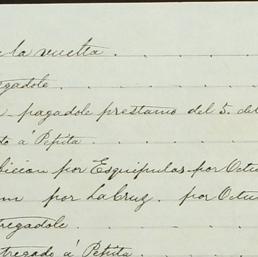 la vuelta
pagadole prestamo del 5. de
á Pepita
por Esquipulas por Octu
por La Cruz. por Octu
tregadole.
tregado á Pepita